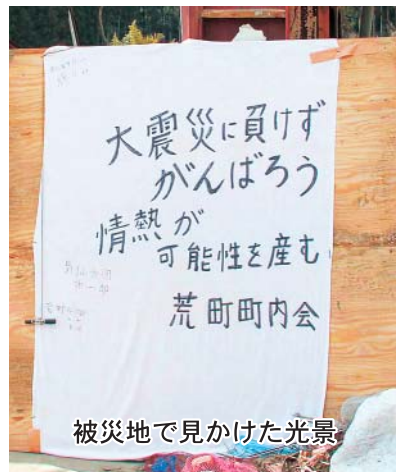 大震災に負けず
がんばろう
情熱が
可能性を産む
荒町町内会
被災地で見かけた光景